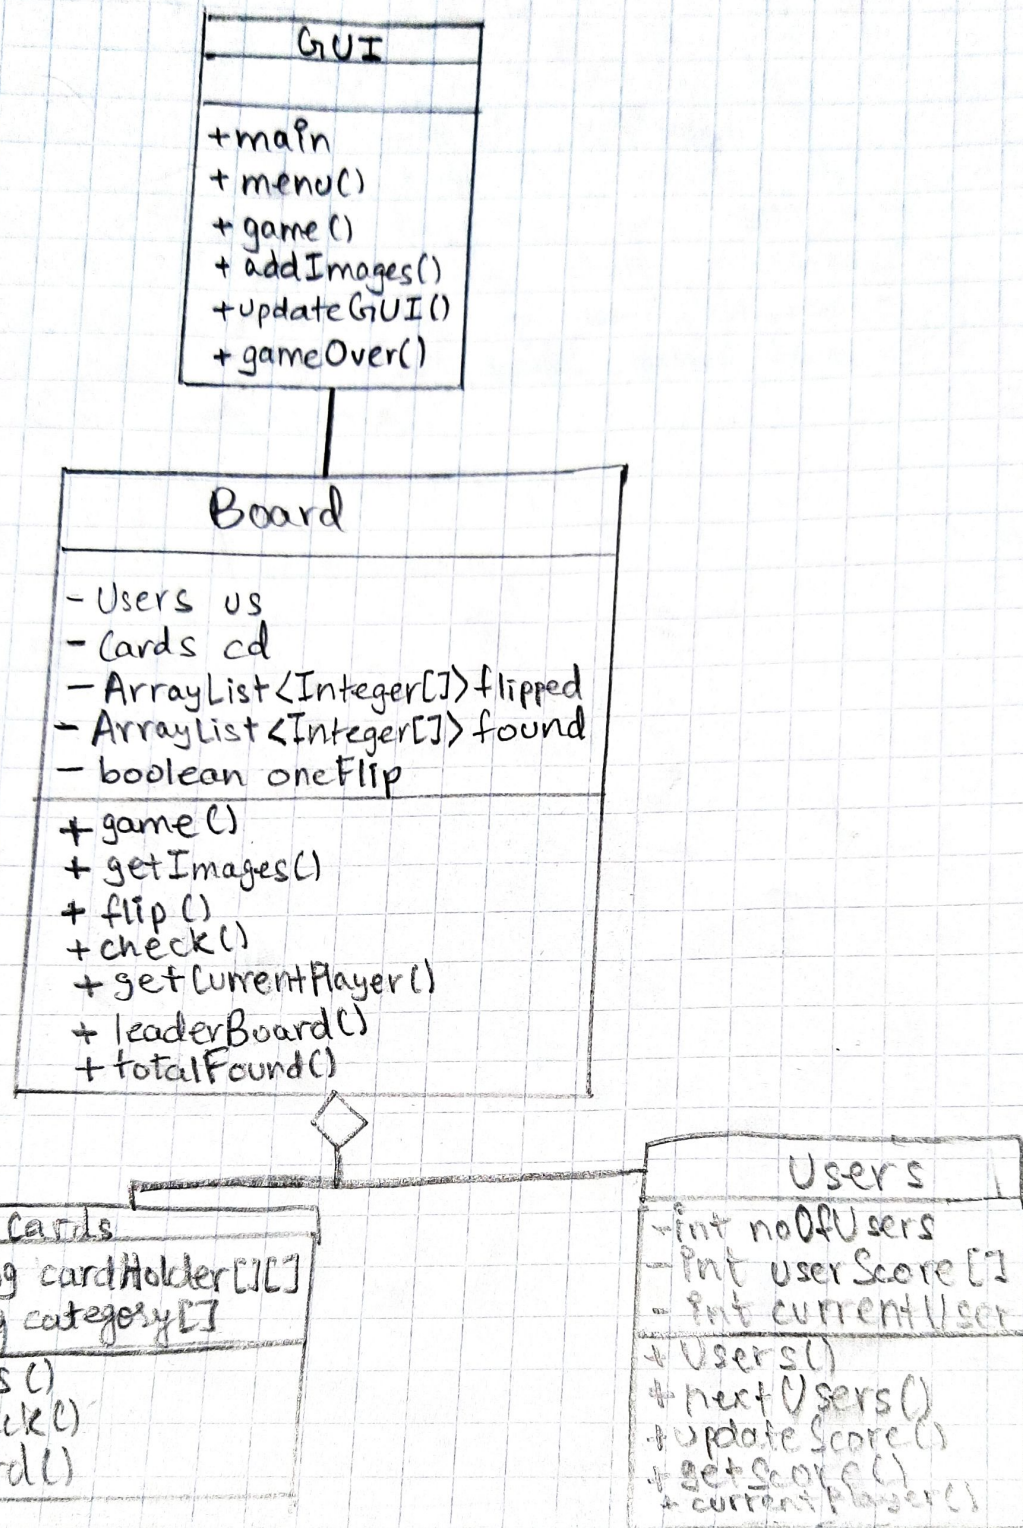 GUI
+main
+ menu()
+ game()
+ addImages()
+updateGUI()
+ gameOver()
Board
- Users us
- Cards cd
- ArrayList<Integer[]> flipped
- ArrayList<Integer[]> found
- boolean oneFlip
+ game()
+ getImages()
+ flip()
+check()
+ getCurrentPlayer()
+ leaderBoard()
+totalFound()
Cards
g cardHolder[][]
g category[]
s()
ck()
rd()
Users
-int noOfUsers
-int userScore[]
- int currentUser
+ Users()
+ nextUsers()
+updateScore()
+ getScore()
+ currentPlayer()